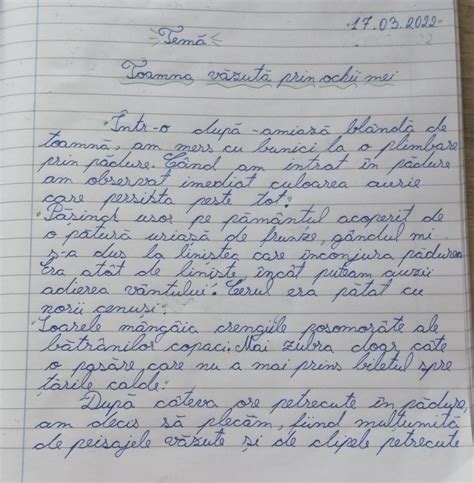 17.03.2022
Temă
Toamna văzută prin ochii mei
Într-o după-amiază blândă de
toamnă, am mers cu bunici la o plimbare
prin pădure. Când am intrat în pădure
am observat imediat culoarea aurie
care persista peste tot.
Pășind ușor pe pământul acoperit de
o pătură uriașă de frunze, gândul mi
s-a dus la liniștea care înconjura pădurea
Era atât de liniște încât puteam auzii
adierea vântului. Cerul era pătat cu
norii cenuși.
Soarele mângâia crengiile posomorâte ale
bătrânilor copaci. Mai zubra doar câte
o pasăre, care nu a mai prins biletul spre
țările calde.
După câteva ore petrecute în pădure,
am decis să plecăm, fiind mulțumită
de peisajele văzute și de clipele petrecute